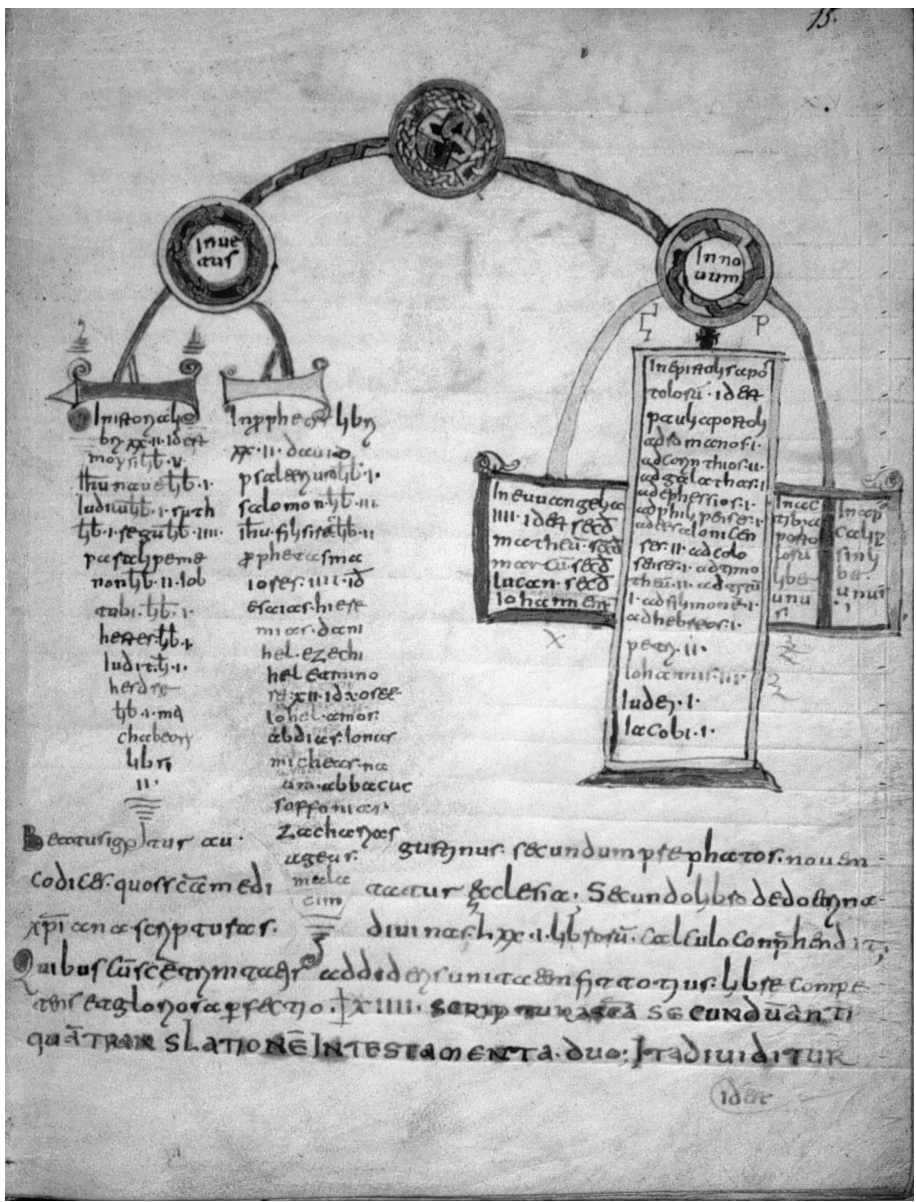 15.
In ue
tus
In no
uum
In istorias li
bri xx·ii·idest
moysi lib·v·
ihu naue lib·i·
iudicu lib·i·ruth
lib·i·regu lib·iiii·
paralypeme
non lib·ii·iob
tobi·lib·i·
hester·lib·i
iudit·lib·i·
hesdre
lib·i·ma
chabeoru
libri
ii·
In pphetas libri
xx·ii·dauid
psalteriu lib·i·
salomon·lib·iii·
ihu filii sirac lib·ii
prophetas ma
iores·iiii·id
esaias hiere
mias·dani
hel·ezechi
hel et mino
res·xii·id·osee
iohel·amos·
abdias·ionas
micheas·na
um·abbacuc
soffonias·
zacharias
ageus·
mala
cim
In euuangelia
iiii·idest secd
matheu·secd
marcu·secd
lucan·secd
iohannem
In epistolis apo
tolorum·idest
pauli apostoli
ad romanos·i·
ad corinthios·ii·
ad galathas·i
ad ephessios·i·
ad philipenses·i·
ad tesalonicen
ses·ii·ad colo
senses·i·ad timo
theu·ii·ad titu
i·ad filimone·i·
ad hebreos·i·
petri·ii·
iohannis·iii·
iude·i·
iacobi·i·
In ac
tibus a
posto
loru
liber
unu
s
In apo
calip
sin li
ber·
unus
Beatus igitur au·gustinus·secundum prefatos·nouem
codices·quos sca meditatur ecclesia·Secundo libro de doctrina
xpiana scripturas·diuinas·lxx·i·librorum·calculo conprehendit;
Quibus cum sce trinitatis addideris unitatem fit totius·libre compe
tens et gloriosa perfectio·xiiii·SCRIPTURA SCA SECUNDU ANTI
QUA TRANSLATIONE IN TESTAMENTA·DUO; ITA DIUIDITUR
idest